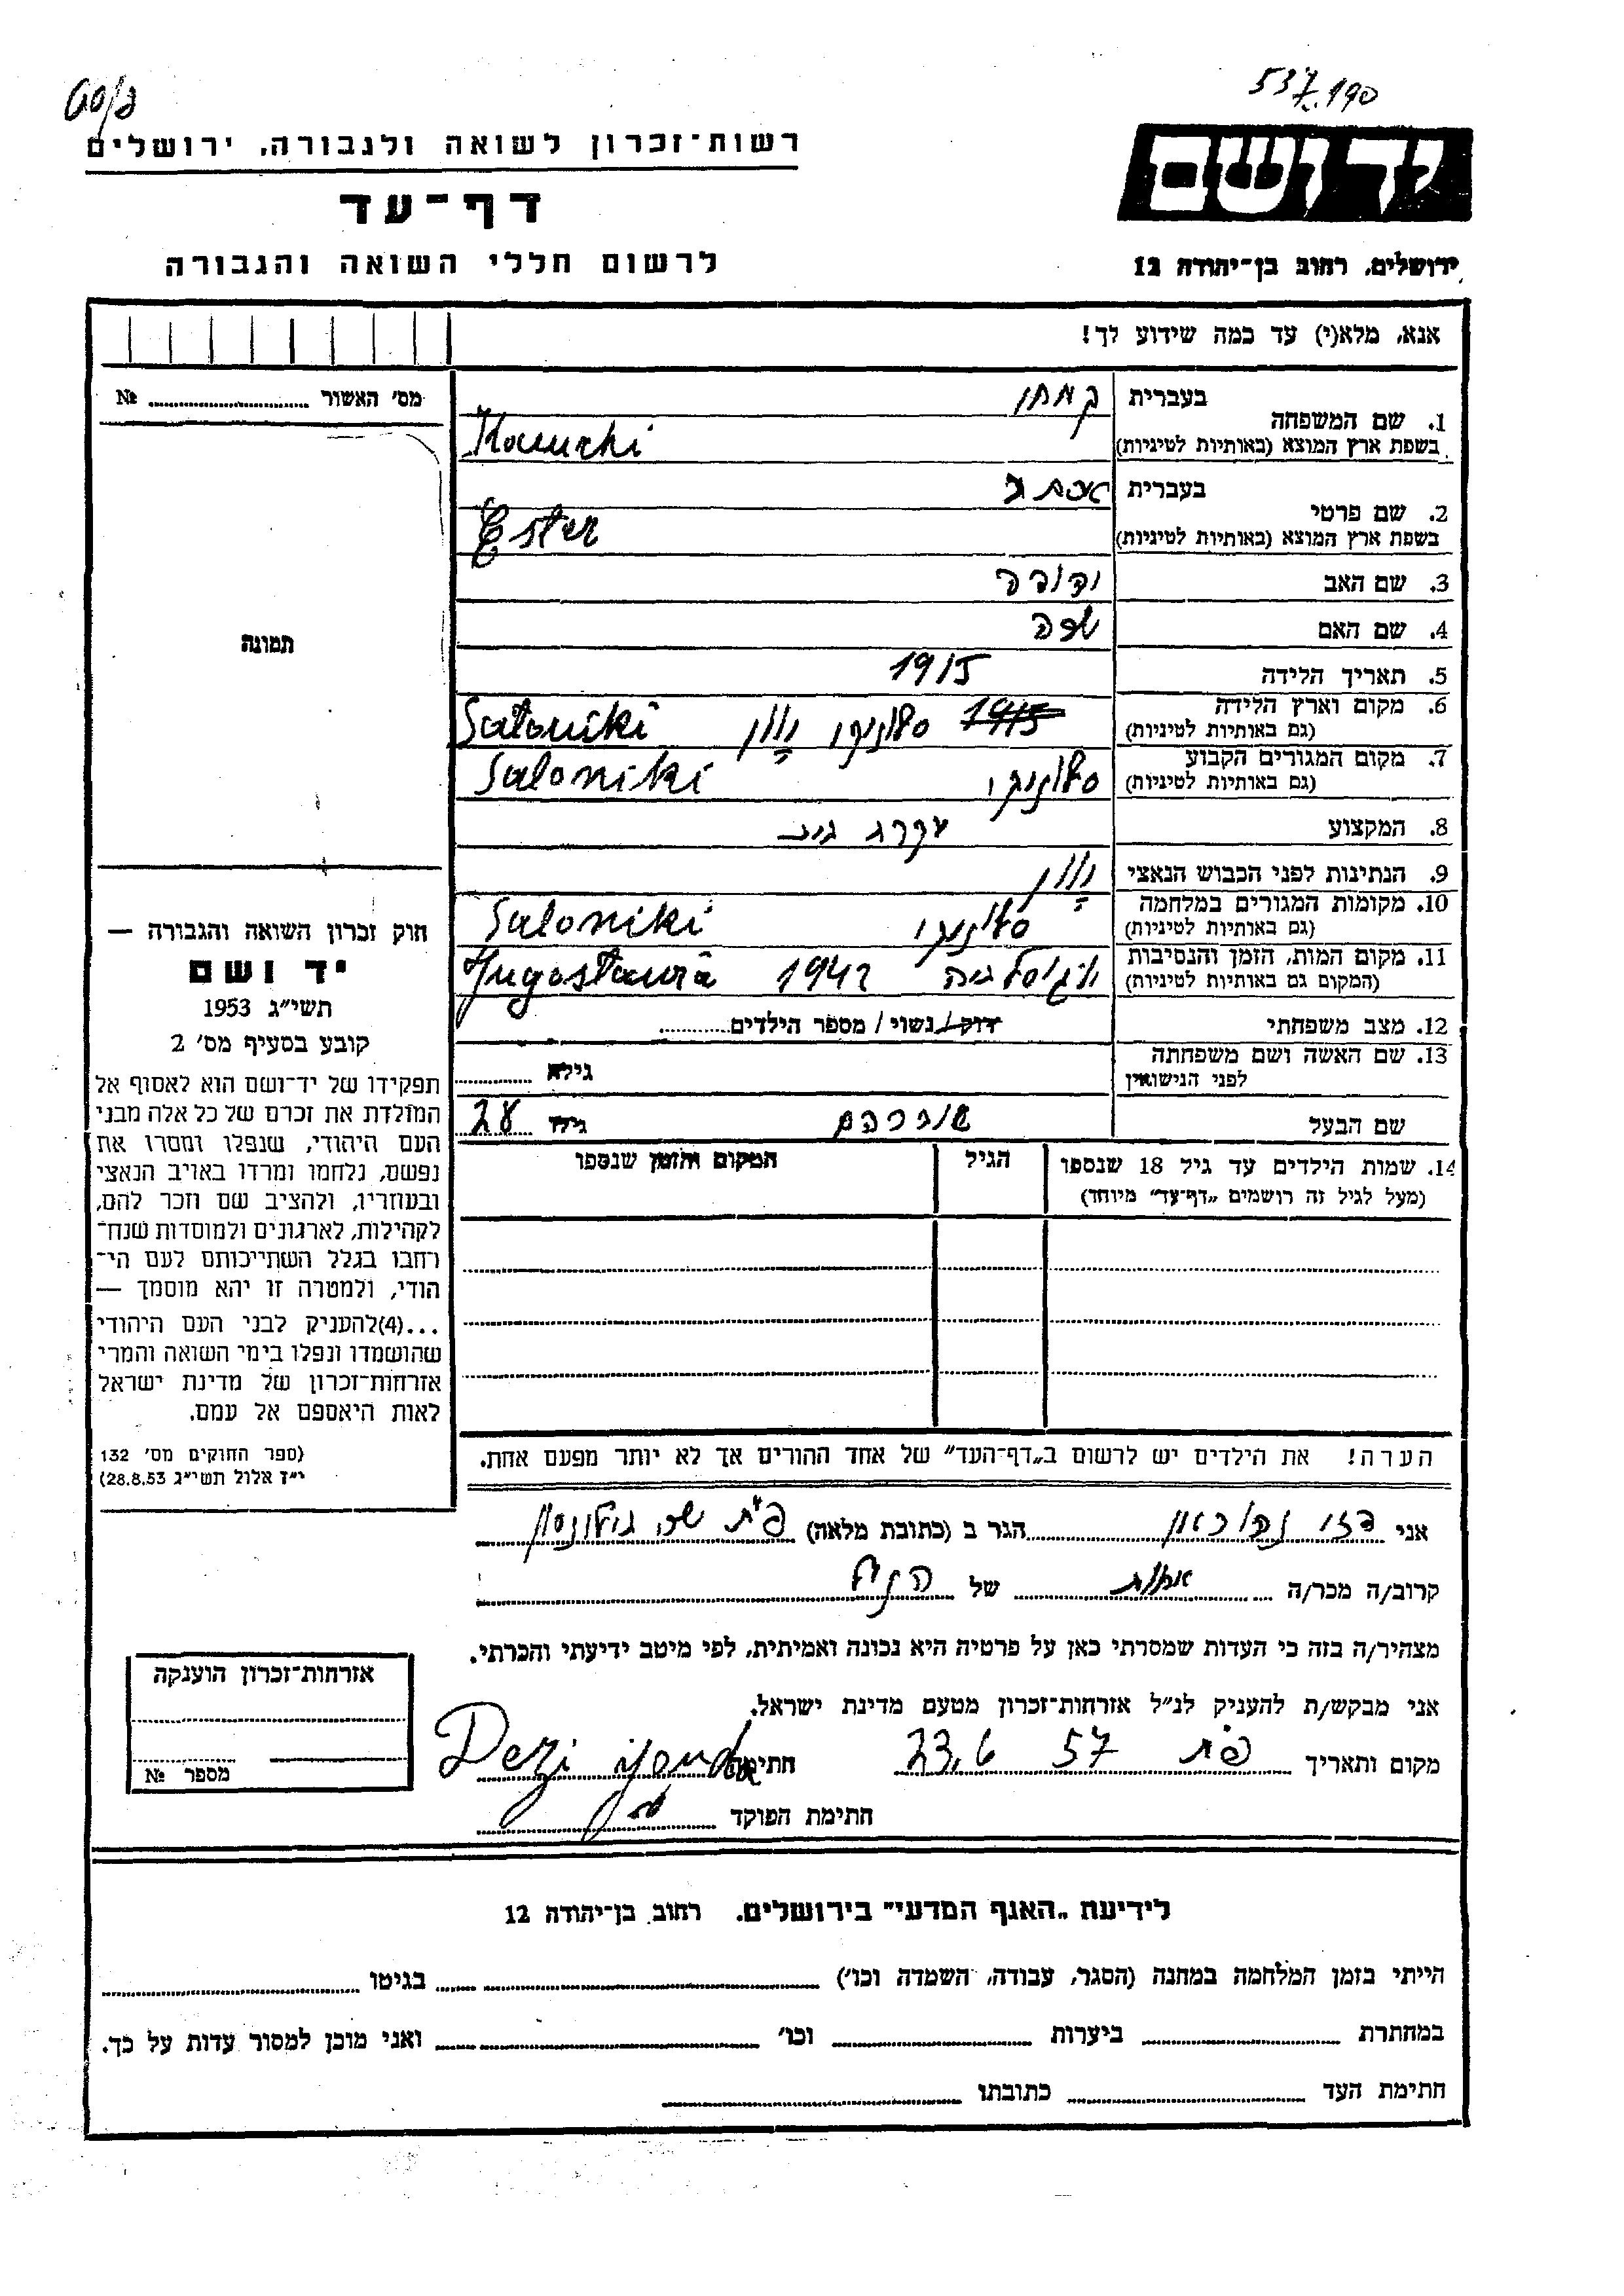 537.190
60/8
יד ושם
רשות־זכרון לשואה ולגבורה, ירושלים
דף־עד
ירושלים, רחוב בן־יהודה 12
לרשום חללי השואה והגבורה
אנא, מלא(י) עד כמה שידוע לך!
מס' האשור № 
1. שם המשפחה
בעברית קמחי
בשפת ארץ המוצא (באותיות לטיניות) Kamchi
2. שם פרטי
בעברית אסתר
בשפת ארץ המוצא (באותיות לטיניות) Ester
3. שם האב יהודה
4. שם האם
5. תאריך הלידה 1915
6. מקום וארץ הלידה 1915 סלוניקי יוון Saloniki
(גם באותיות לטיניות)
7. מקום המגורים הקבוע סלוניקי Saloniki
(גם באותיות לטיניות)
8. המקצוע עקרת בית
9. הנתינות לפני הכבוש הנאצי יוון
10. מקומות המגורים במלחמה סלוניקי Saloniki
(גם באותיות לטיניות)
11. מקום המות, הזמן והנסיבות יוגוסלביה 1942 Jugoslavia
(המקום גם באותיות לטיניות)
12. מצב משפחתי רווק/נשוי/ מספר הילדים
13. שם האשה ושם משפחתה
לפני הנישואין
גילה
שם הבעל גילו 28
14. שמות הילדים עד גיל 18 שנספו
(מעל לגיל זה רושמים „דף־עד” מיוחד)
הגיל
המקום והזמן שנספו
תמונה
חוק זכרון השואה והגבורה —
יד ושם
תשי״ג 1953
קובע בסעיף מס' 2
תפקידו של יד־ושם הוא לאסוף אל
המולדת את זכרם של כל אלה מבני
העם היהודי, שנפלו ומסרו את
נפשם, נלחמו ומרדו באויב הנאצי
ובעוזריו, ולהציב שם וזכר להם,
לקהילות, לארגונים ולמוסדות שנח־
רבו בגלל השתייכותם לעם הי־
הודי, ולמטרה זו יהא מוסמך —
...(4)להעניק לבני העם היהודי
שהושמדו ונפלו בימי השואה והמרי
אזרחות־זכרון של מדינת ישראל
לאות היאספם אל עמם.
(ספר החוקים מס' 132
י״ז אלול תשי״ג 28.8.53)
הערה! את הילדים יש לרשום ב„דף־העד” של אחד ההורים אך לא יותר מפעם אחת.
אני הגר ב (כתובת מלאה)
קרוב/ה מכר/ה אחות של הנ״ל
מצהיר/ה בזה כי העדות שמסרתי כאן על פרטיה היא נכונה ואמיתית, לפי מיטב ידיעתי והכרתי.
אני מבקש/ת להעניק לנ״ל אזרחות־זכרון מטעם מדינת ישראל.
מקום ותאריך 23.6 57 חתימה Dezi
חתימת הפוקד
אזרחות־זכרון הוענקה
מספר №
לידיעת „האגף המדעי” בירושלים. רחוב בן־יהודה 12
הייתי בזמן המלחמה במחנה (הסגר, עבודה, השמדה וכו') בגיטו
במחתרת ביערות וכו' ואני מוכן למסור עדות על כך.
חתימת העד כתובתו